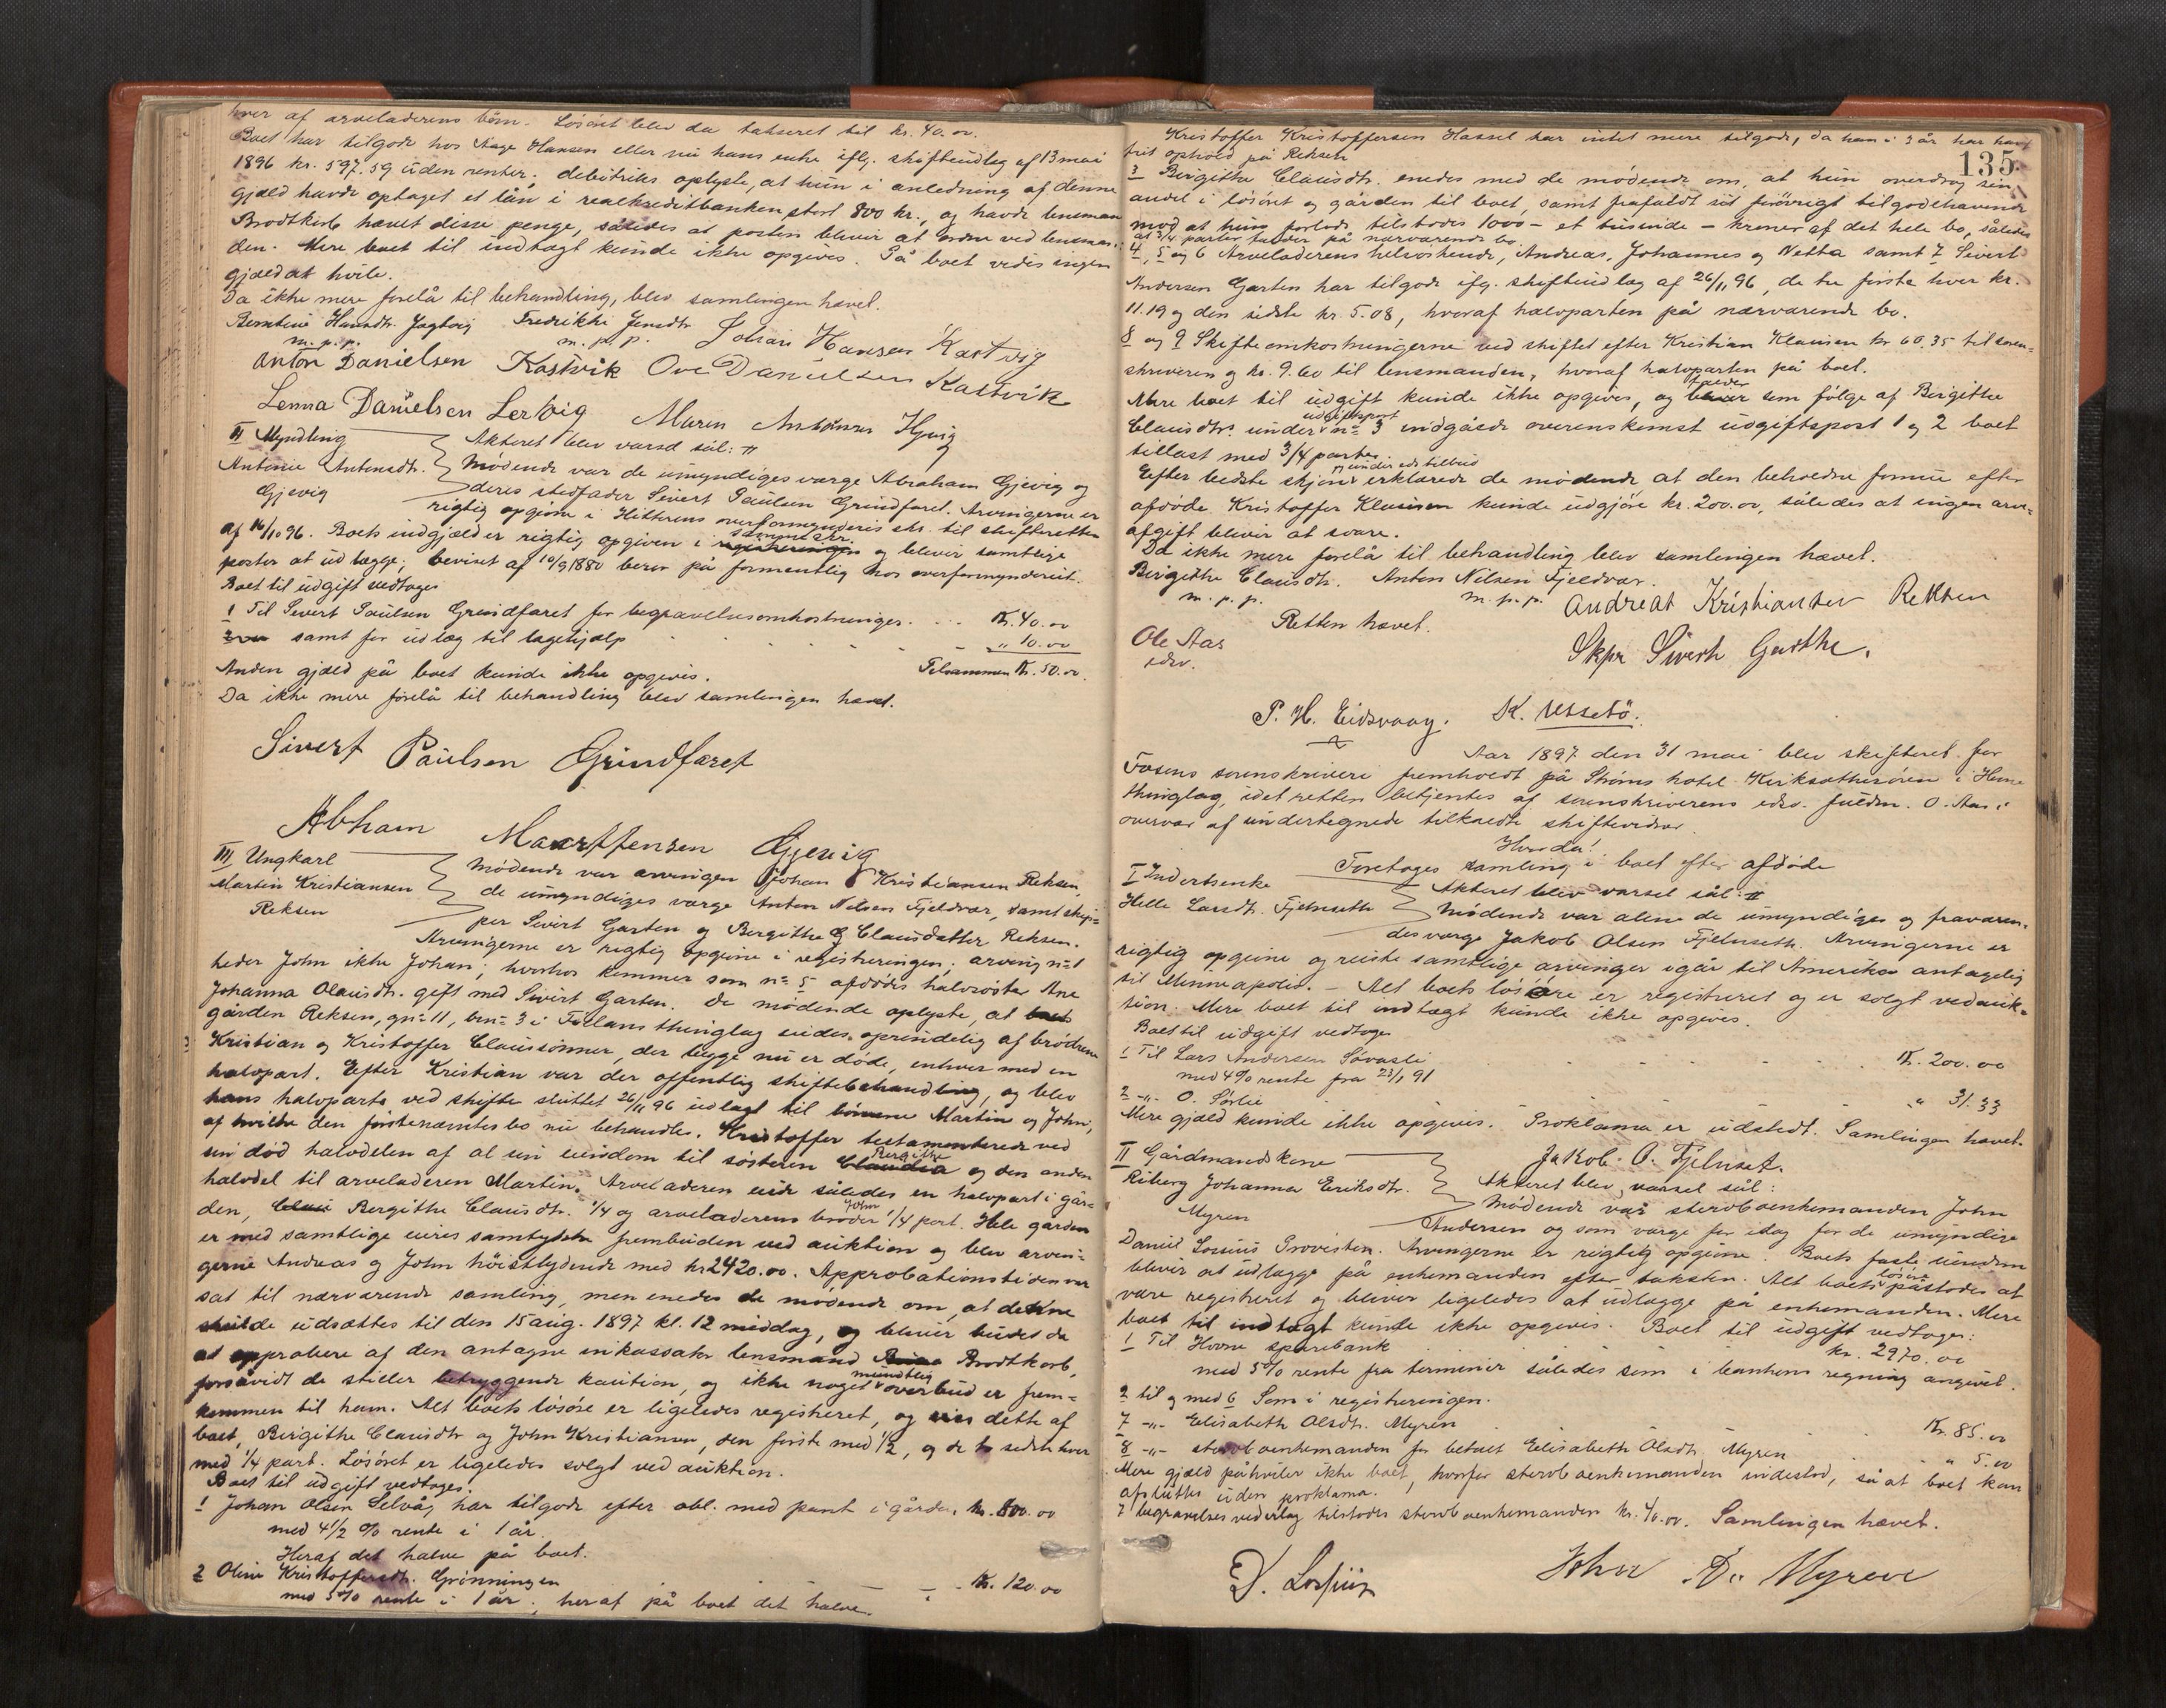 hver af arveladerens börn. Lösöret blev da takseret til kr. 40.00.
Boet har tilgode hos Aage Hansen eller nu hans enke iflg. skifteudlæg af 13 mai
1896 kr. 597.59 uden renter; debitriks oplyste, at hun i anledning af denne
gjæld havde optaget et lån i realkreditbanken stort 800 kr., og havde lensmann
Brodtkorb hævet disse penge, således at posten bliver at ordne ved lensman-
den. Mere boet til indtægt kunde ikke opgives. På boet vides ingen
gjæld at hvile.
Da ikke mere forelå til behandling, blev samlingen hævet.
Berntine Hansdtr. Jagtvig Fredrikke Jensdtr Johan Hansen Kastvig
m.p.p. m.p.p.
Anton Danielsen Kastvik Ove Danielsen Kastvik
Lenna Danielsen Lervig Maren Antonsen Hjvig
II Myndling Akteret blev varsel sål: #
Antonie Antonsdtr. Mödende var de umyndiges værge Abraham Gjevig og
Gjevig deres stedfader Sivert Paulsen Grindfaret. Arvingerne er
rigtig opgivne i Hitterens overformynderis skr. til skifteretten
af 16/10 96. Boets indgjæld er rigtig opgiven i samme skr. og bliver samtlige
poster at udlægge; beviset af 10/9 1880 beror på formentlig hos overformynderiet.
Boet til udgift vedtoges
1 Til Sivert Paulsen Grindfaret for begravelsesomkostninger. . . . Kr. 40.00
samt for udlæg til lægehjælp . . . . . " 10.00
Tilsammen Kr. 50.00.
Anden gjæld på boet kunde ikke opgives.
Da ikke mere forelå til behandling blev samlingen hævet.
Sivert Paulsen Grindfaret
Abham Maarttensen Gjevig
III Ungkarl Mödende var arvingen Johan Kristiansen Reksen,
Martin Kristiansen de umyndiges værge Anton Nilsen Fjeldvær, samt skip-
Reksen per Sivert Garten og Bergithe Clausdatter Reksen.
Arvingerne er rigtig opgivne i registreringen; arving no 1
heder John ikke Johan; hvorhos kommer som no 5 afdödes halvsöster Ane
Johanna Olausdtr. gift med Sivert Garten. De mödende oplyste, at
gården Reksen, gno 11, bno 3 i Fillans thinglag eiedes oprindelig af brödrene
Kristian og Kristoffer Claussönner, der begge nu er döde, enhver med en
halvpart. Efter Kristian var der offentlig skiftebehandling, og blev
hans halvparts ved skifte sluttet 26/11 96 udlagt til sönnerne Martin og John,
af hvilke den förstenævntes bo nu behandles. Kristoffer testamenterede ved
sin död halvdelen af al sin eiendom til sösteren Bergithe og den anden
halvdel til arveladeren Martin. Arveladeren eide således en halvpart i går-
den, Bergithe Clausdtr. 1/4 og arveladerens broder John 1/4 part. Hele gården
er med samtlige eieres samtykke frembuden ved auktion og blev arvin-
gerne Andreas og John höistbydende med kr 2420.00. Approbationstiden var
sat til nærværende samling, men enedes de mödende om, at denne
skulde udsættes til den 15 aug. 1897 kl. 12 middag, og bliver budet da
at approbere af den antagne inkassator lensmand Brodtkorb,
forsåvidt de stiller betryggende kaution, og ikke noget mundtlig overbud er frem-
kommen til ham. Alt boets lösöre er ligeledes registreret, og eies dette af
boet, Birgithe Clausdtr og John Kristiansen, den förste med 1/2, og de to sidste hver
med 1/4 part. Lösöret er ligeledes solgt ved auktion.
Boet til udgift vedtoges.
1 Johan Olsen Selvåg har tilgode efter obl. med pant i gården kr. 800.00
med 4 1/2 % rente i 1 år.
Heraf det halve på boet.
2 Oline Kristoffersdtr. Grönningen . . . . Kr. 120.00
med 5% rente i 1 år; heraf på boet det halve.
135.
Kristoffer Kristoffersen Hassel har intet mere tilgode, da han i 3 år har havt
frit ophold på Reksen
3 Birgithe Clausdtr. enedes med de mödende om, at hun overdrog sin
andel i lösöret og gården til boet, samt frafaldt sit förövrigt tilgodehavende
mod at hun forlods tilstodes 1000 - et tusinde - kroner af det hele bo, således
at 3/4 parter falder på nærværende bo.
4, 5 og 6 Arveladerens helsöskende, Andreas, Johannes og Netta samt 7 Sivert
Andersen Garten har tilgode iflg. skifteudlæg af 26/11 96, de tre förste hver kr.
11.19 og den sidste kr. 5.08, hvoraf halvparten på nærværende bo.
8 og 9 Skifteomkostningerne ved skiftet efter Kristian Klausen kr 60.35 til soren-
skriveren og kr. 9.60 til lensmanden, hvoraf halvparten på boet.
Mere boet til udgift kunde ikke opgives, og falder som fölge af Birgithe
Clausdtrs under udgiftspost no 3 indgåede overenskomst udgiftspost 1 og 2 boet
tillast med 3/4 parter.
Efter bedste skjön under eds tilbud erklærede de mödende at den beholdne formue efter
afdöde Kristoffer Klausen kunde udgjöre kr. 200.00, således at ingen arve-
afgift bliver at svare.
Da ikke mere forelå til behandling blev samlingen hævet.
Birgithe Clausdtr. Anton Nilsen Fjeldvær.
m.p.p. m.p.p. Andreas Kristiansen Reksen
Retten hævet.
Ole Aas Skpr Sivert Garthe.
edsv.
P. H. Eidsvaag. K. Ussetö.
Aar 1897 den 31 mai blev skifteret for
Fosens sorenskriveri fremholdt på Ströms hotel Kirksætherören i Hevne
thinglag, idet retten betjentes af sorenskriverens edsv. fuldm. O. Aas i
overvær af undertegnede tilkaldte skiftevidner.
Hvorda!
Foretoges samling i boet efter afdöde
I Inderstenke Akteret blev varsel sål: #
Helle Larsdtr. Fjelnseth Mödende var alene de umyndiges og fraværen-
des værge Jakob Olsen Fjelnseth. Arvingerne er
rigtig opgivne og reiste samtlige arvinger igår til Amerika antagelig
til Minneapolis. - Alt boets lösöre er registreret og er solgt ved auk-
tion. Mere boet til indtægt kunde ikke opgives.
Boet til udgift vedtoges
1 Til Lars Andersen Sövasli . . . . . Kr. 200.00
med 4% rente fra 23/1 91
2 -"- O. Sörlie " 31.33
Mere gjæld kunde ikke opgives. Proklama er udstedt. Samlingen hævet.
Jakob. O. Fjelnset.
II Gårdmandskone Akteret blev varsel sål:
Riberg Johanna Eriksdtr. Mödende var sterboenkemanden John
Myren Andersen og som værge for idag for de umyndige
Daniel Lossius Provisten. Arvingerne er rigtig opgivne. Boets faste eiendom
bliver at udlægge på enkemanden efter taksten. Alt boets lösöre påstodes at
være registreret og bliver ligeledes at udlægge på enkemanden. Mere
boet til indtægt kunde ikke opgives. Boet til udgift vedtoges:
1 Til Hevne sparebank kr. 2970.00
med 5% rente fra terminer således som i bankens regning angivet.
2 til og med 6 Som i registreringen.
7 -"- Elisabeth Olsdtr. Myren Kr. 85.00
8 -"- sterboenkemanden for betalt Elisabeth Olsdtr. Myren . . " 5.00
Mere gjæld påhviler ikke boet, hvorfor sterboenkemanden indestod, så at boet kan
afsluttes uden proklama.
I begravelsesvederlag tilstodes sterboenkemanden kr. 40.00. Samlingen hævet.
D. Lossius John A. Myren